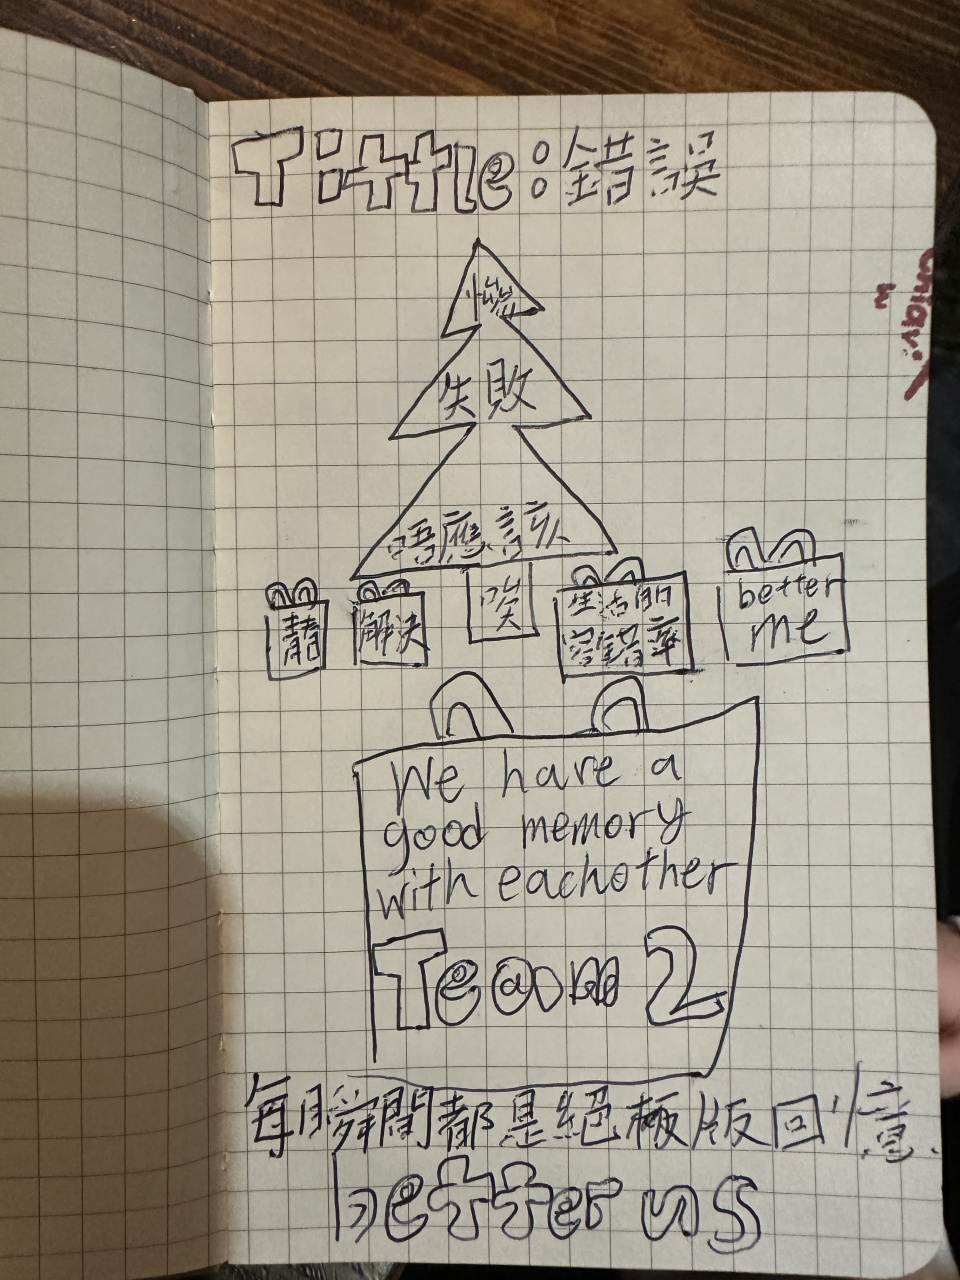 Tittle:錯誤
失敗
唔應該認
解決
唉
生活的
容錯率
better
me
We have a
good memory
with eachother
Team 2
每瞬間都是絕極版回憶
better us